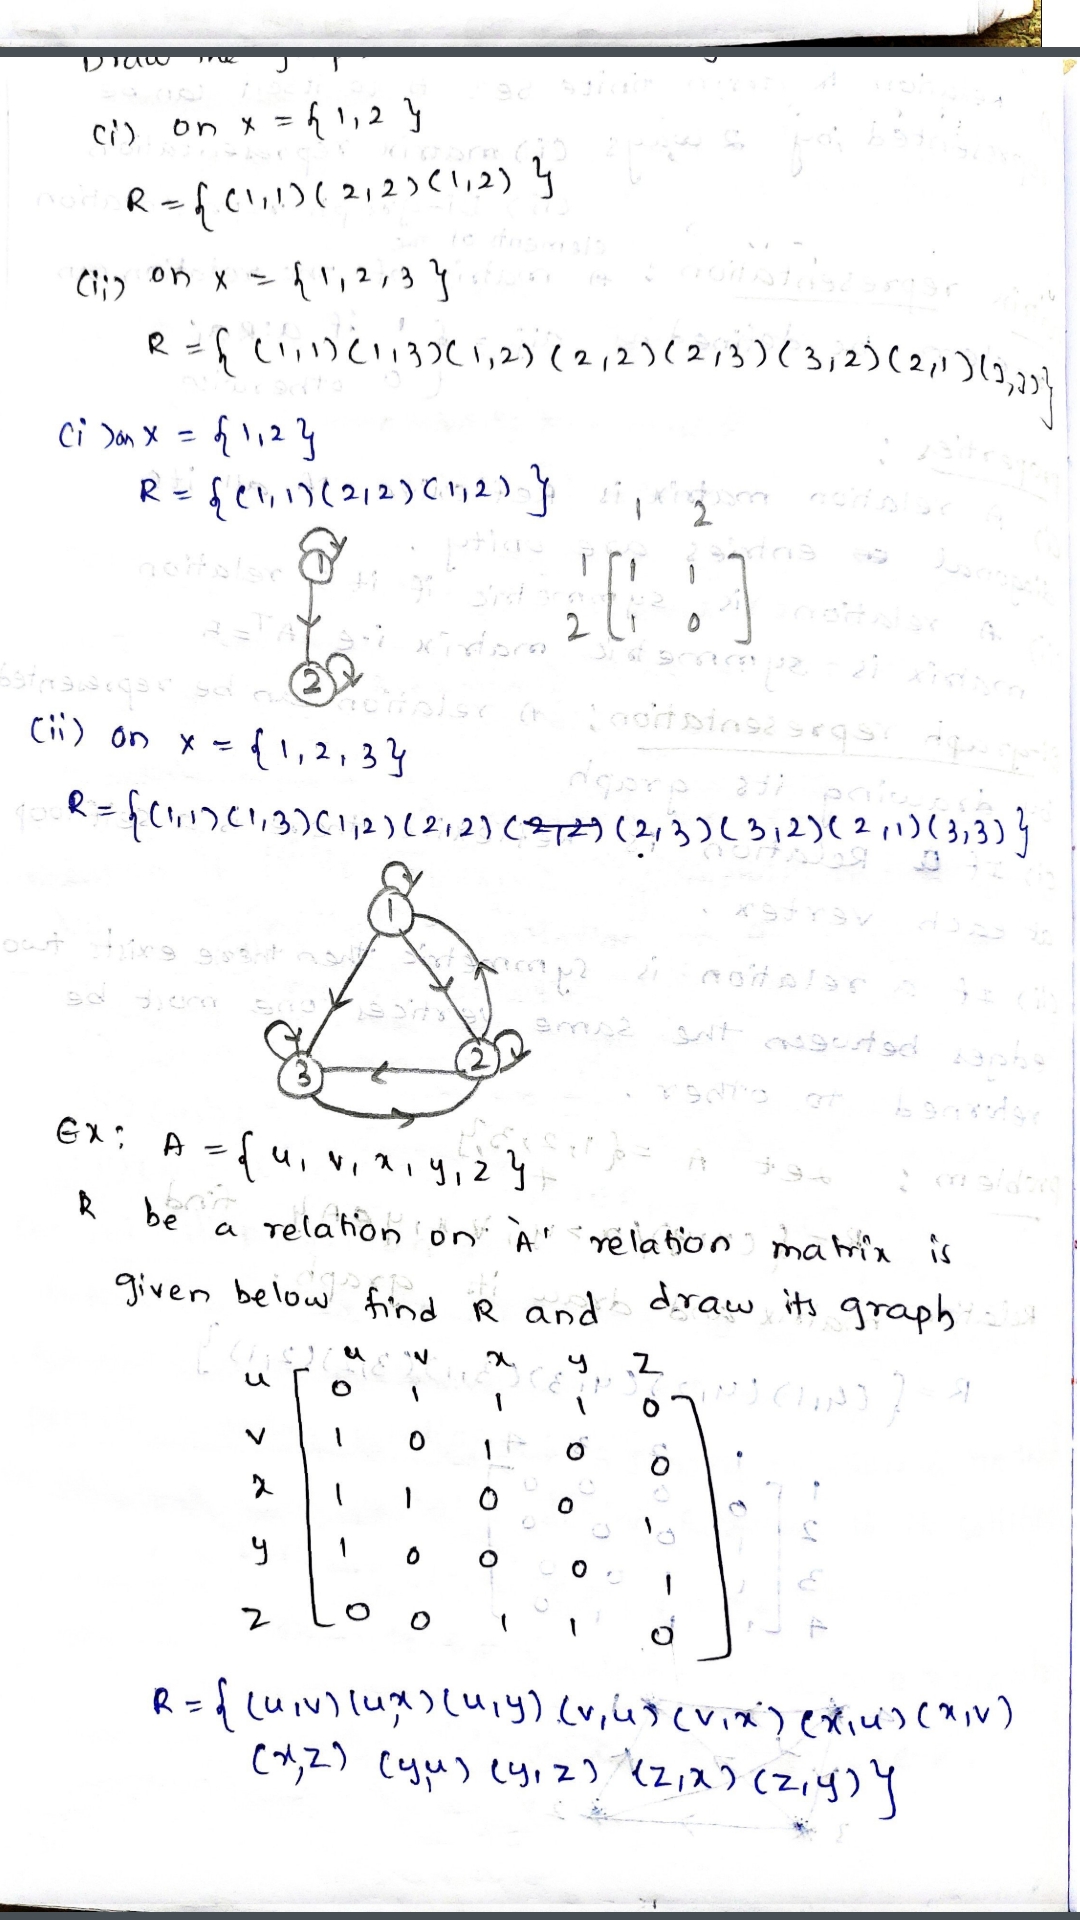 Draw the
(i) on x = {1,2}
R = {(1,1)(2,2)(1,2)}
(ii) on x = {1,2,3}
R = {(1,1)(1,3)(1,2)(2,2)(2,3)(3,2)(2,1)(3,3)}
(i) on x = {1,2}
R = {(1,1)(2,2)(1,2)}
1 2
1 [1 1]
2 [1 0]
1
2
(ii) on x = {1,2,3}
R = {(1,1)(1,3)(1,2)(2,2)(2,2)(2,3)(3,2)(2,1)(3,3)}
1
3 2
Ex: A = {u, v, x, y, z}
R be a relation on 'A' relation matrix is
given below find R and draw its graph
u v x y z
u 0 1 1 1 0
v 1 0 1 0 0
x 1 1 0 0 1
y 1 0 0 0 1
z 0 0 1 1 0
R = {(u,v)(u,x)(u,y)(v,u)(v,x)(x,u)(x,v)
(x,z) (y,u) (y,z) (z,x) (z,y)}